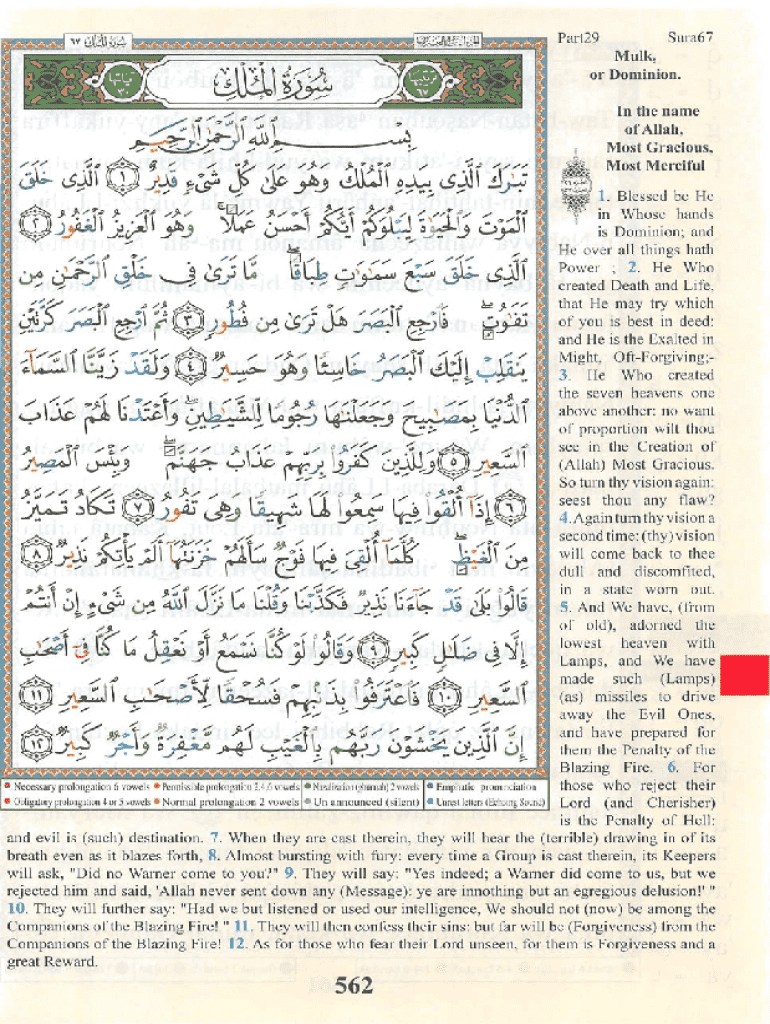 سُورَةُ المُلْكِ ٦٧
Part29 Sura67
سُورَةُ المُلْكِ
بِسْمِ ٱللَّهِ ٱلرَّحْمَٰنِ ٱلرَّحِيمِ
تَبَٰرَكَ ٱلَّذِى بِيَدِهِ ٱلْمُلْكُ وَهُوَ عَلَىٰ كُلِّ شَىْءٍ قَدِيرٌ ١ ٱلَّذِى خَلَقَ
ٱلْمَوْتَ وَٱلْحَيَوٰةَ لِيَبْلُوَكُمْ أَيُّكُمْ أَحْسَنُ عَمَلًا ۚ وَهُوَ ٱلْعَزِيزُ ٱلْغَفُورُ ٢
ٱلَّذِى خَلَقَ سَبْعَ سَمَٰوَٰتٍ طِبَاقًا ۖ مَّا تَرَىٰ فِى خَلْقِ ٱلرَّحْمَٰنِ مِن
تَفَٰوُتٍ ۖ فَٱرْجِعِ ٱلْبَصَرَ هَلْ تَرَىٰ مِن فُطُورٍ ٣ ثُمَّ ٱرْجِعِ ٱلْبَصَرَ كَرَّتَيْنِ
يَنقَلِبْ إِلَيْكَ ٱلْبَصَرُ خَاسِئًا وَهُوَ حَسِيرٌ ٤ وَلَقَدْ زَيَّنَّا ٱلسَّمَآءَ
ٱلدُّنْيَا بِمَصَٰبِيحَ وَجَعَلْنَٰهَا رُجُومًا لِّلشَّيَٰطِينِ ۖ وَأَعْتَدْنَا لَهُمْ عَذَابَ
ٱلسَّعِيرِ ٥ وَلِلَّذِينَ كَفَرُوا۟ بِرَبِّهِمْ عَذَابُ جَهَنَّمَ ۖ وَبِئْسَ ٱلْمَصِيرُ
٦ إِذَآ أُلْقُوا۟ فِيهَا سَمِعُوا۟ لَهَا شَهِيقًا وَهِىَ تَفُورُ ٧ تَكَادُ تَمَيَّزُ
مِنَ ٱلْغَيْظِ ۖ كُلَّمَآ أُلْقِىَ فِيهَا فَوْجٌ سَأَلَهُمْ خَزَنَتُهَآ أَلَمْ يَأْتِكُمْ نَذِيرٌ ٨
قَالُوا۟ بَلَىٰ قَدْ جَآءَنَا نَذِيرٌ فَكَذَّبْنَا وَقُلْنَا مَا نَزَّلَ ٱللَّهُ مِن شَىْءٍ إِنْ أَنتُمْ
إِلَّا فِى ضَلَٰلٍ كَبِيرٍ ٩ وَقَالُوا۟ لَوْ كُنَّا نَسْمَعُ أَوْ نَعْقِلُ مَا كُنَّا فِىٓ أَصْحَٰبِ
ٱلسَّعِيرِ ١٠ فَٱعْتَرَفُوا۟ بِذَنۢبِهِمْ فَسُحْقًا لِّأَصْحَٰبِ ٱلسَّعِيرِ ١١
إِنَّ ٱلَّذِينَ يَخْشَوْنَ رَبَّهُم بِٱلْغَيْبِ لَهُم مَّغْفِرَةٌ وَأَجْرٌ كَبِيرٌ ١٢
Necessary prolongation 6 vowels Permissible prolongation 2,4,6 vowels Nasalization (ghunnah) 2 vowels Emphatic pronunciation
Obligatory prolongation 4 or 5 vowels Normal prolongation 2 vowels Un announced (silent) Unrest letters (Echoing Sound)
Mulk,
or Dominion.
In the name
of Allah,
Most Gracious,
Most Merciful
1. Blessed be He
in Whose hands
is Dominion; and
He over all things hath
Power ; 2. He Who
created Death and Life,
that He may try which
of you is best in deed:
and He is the Exalted in
Might, Oft-Forgiving;-
3. He Who created
the seven heavens one
above another: no want
of proportion wilt thou
see in the Creation of
(Allah) Most Gracious.
So turn thy vision again:
seest thou any flaw?
4.Again turn thy vision a
second time: (thy) vision
will come back to thee
dull and discomfited,
in a state worn out.
5. And We have, (from
of old), adorned the
lowest heaven with
Lamps, and We have
made such (Lamps)
(as) missiles to drive
away the Evil Ones,
and have prepared for
them the Penalty of the
Blazing Fire. 6. For
those who reject their
Lord (and Cherisher)
is the Penalty of Hell:
and evil is (such) destination. 7. When they are cast therein, they will hear the (terrible) drawing in of its
breath even as it blazes forth, 8. Almost bursting with fury: every time a Group is cast therein, its Keepers
will ask, "Did no Warner come to you?" 9. They will say: "Yes indeed; a Warner did come to us, but we
rejected him and said, 'Allah never sent down any (Message): ye are innothing but an egregious delusion!' "
10. They will further say: "Had we but listened or used our intelligence, We should not (now) be among the
Companions of the Blazing Fire! " 11. They will then confess their sins: but far will be (Forgiveness) from the
Companions of the Blazing Fire! 12. As for those who fear their Lord unseen, for them is Forgiveness and a
great Reward.
562